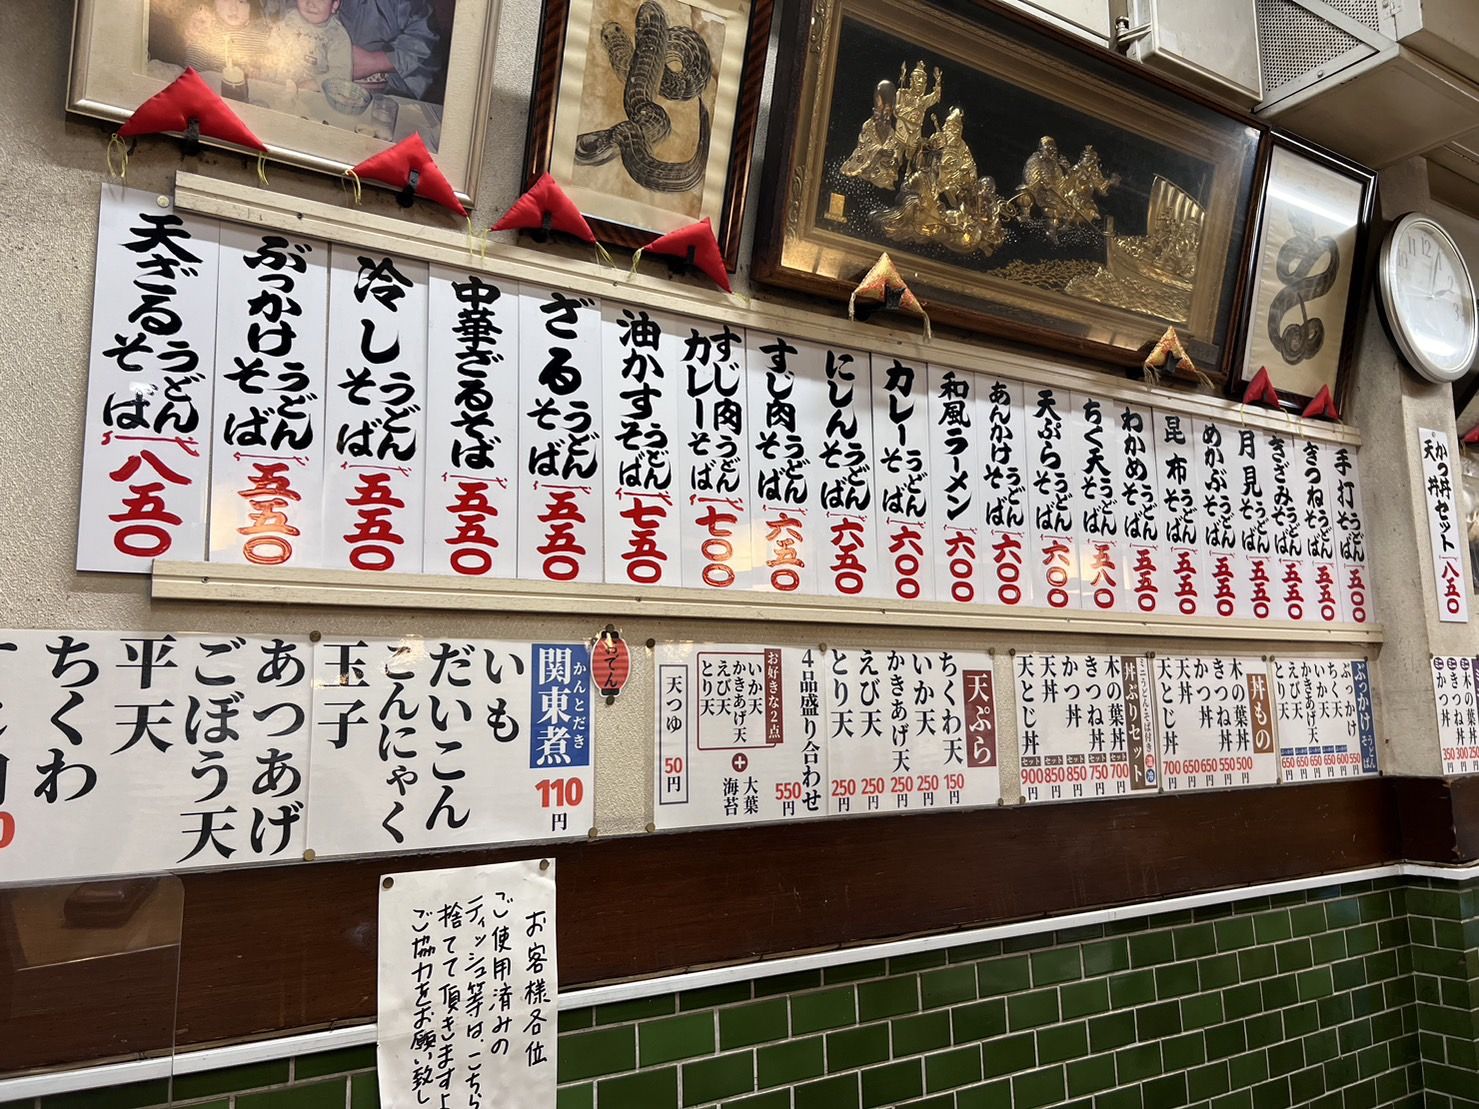 手打うどんそば 五〇〇
きつねうどんそば 五五〇
きざみうどんそば 五五〇
月見うどんそば 五五〇
めかぶうどんそば 五五〇
昆布うどんそば 五五〇
わかめうどんそば 五五〇
ちく天うどんそば 五八〇
天ぷらうどんそば 六〇〇
あんかけうどんそば 六〇〇
和風ラーメン 六〇〇
カレーうどんそば 六〇〇
にしんうどんそば 六五〇
すじ肉うどんそば 六五〇
すじ肉カレーうどんそば 七〇〇
油かすうどんそば 七五〇
ざるうどんそば 五五〇
中華ざるそば 五五〇
冷しうどんそば 五五〇
ぶっかけうどんそば 五五〇
天ざるうどんそば 八五〇
かつ丼セット
天丼
八五〇
ぶっかけ うどんそば
ぶっかけ 550円
ちく天 600円
いか天 650円
かきあげ天 650円
えび天 650円
とり天 650円
丼もの
木の葉丼 500円
きつね丼 550円
かつ丼 650円
天丼 650円
天とじ丼 700円
ミニうどん・そば付き 温 冷
丼ぶりセット
木の葉丼 セット 700円
きつね丼 セット 750円
かつ丼 セット 850円
天丼 セット 850円
天とじ丼 セット 900円
天ぷら
ちくわ天 150円
いか天 250円
かきあげ天 250円
えび天 250円
とり天 250円
4品盛り合わせ 550円
お好きな2点
いか天
かきあげ天
えび天
とり天
大葉
海苔
天つゆ 50円
おでん
かんとだき
関東煮 110円
いも
だいこん
こんにゃく
玉子
あつあげ
ごぼう天
平天
ちくわ
お客様各位
ご使用済みの
ティッシュ等は、こちら
捨てて頂きますよ
ご協力をお願い致し